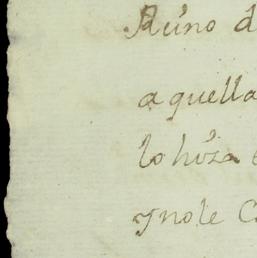 Reino d
aquella
lo hiza
ynole C